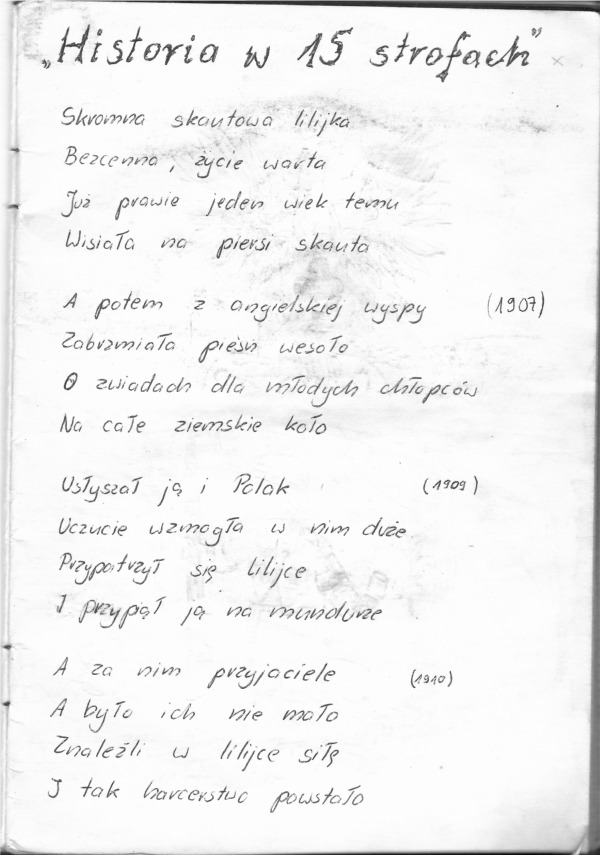 „Historia w 15 strofach”
Skromna skautowa lilijka
Bezcenna, życie warta
Już prawie jeden wiek temu
Wisiała na piersi skauta
A potem z angielskiej wyspy (1907)
Zabrzmiała pieśń wesoło
O zwiadach dla młodych chłopców
Na całe ziemskie koło
Usłyszał ją i Polak (1909)
Uczucie wzmogła w nim duże
Przypatrzył się lilijce
I przypiął ją na mundurze
A za nim przyjaciele (1910)
A było ich nie mało
Znaleźli w lilijce siłę
I tak harcerstwo powstało